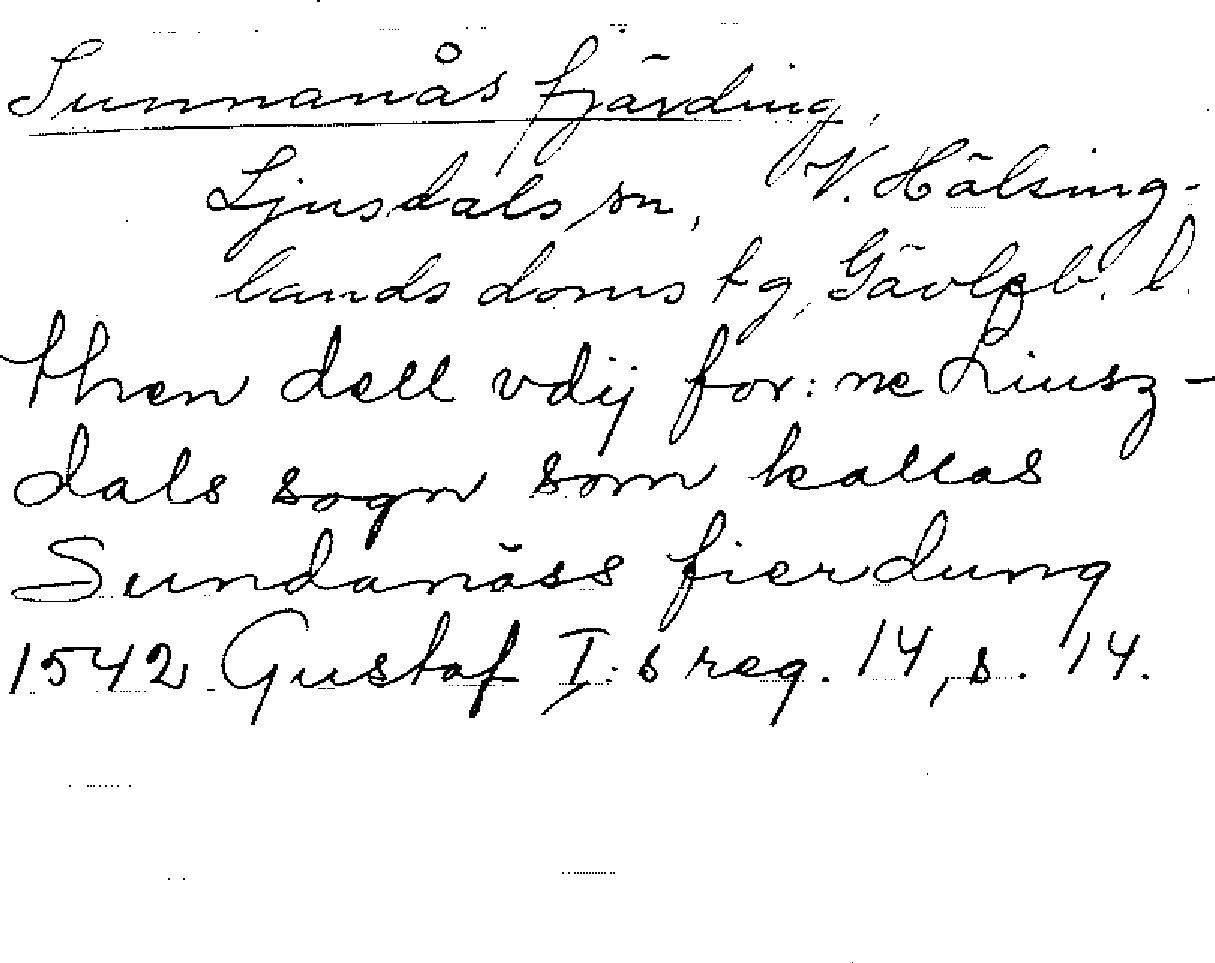 Sunnanås fjärding,
Ljusdals sn, V. Hälsing-
lands doms tg, Gävleb. l.
then dell vdij for: ne Liusz-
dals sogn som kallas
Sundanäss fierdung
1542 Gustaf I:s reg. 14, s. 14.